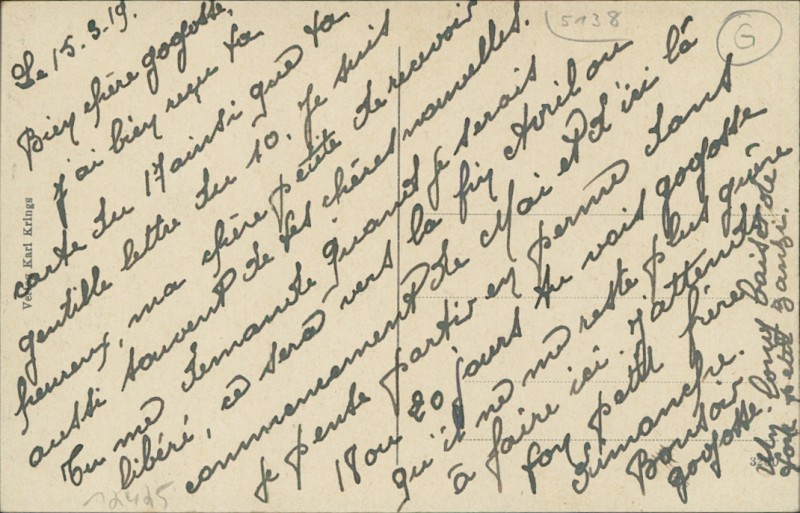 Le 15.3.19.
Bien chère gogosse,
J'ai bien reçu ta
carte du 17 ainsi que ta
gentille lettre du 10. Je suis
heureux, ma chère petite de recevoir
aussi souvent de tes chères nouvelles.
Tu me demande quand je serais
libéré, ce sera vers la fin Avril ou
commencement de Mai et d'ici là
je pense partir en perme dans
18 ou 20 jours tu vois gogosse
qu'il ne me reste plus guère
à faire ici. J'attends
ton petit frère
dimanche.
Bonsoir
gogosse.
Un long baiser de
ton petit
Verlag Karl Krings
5138
G
12425